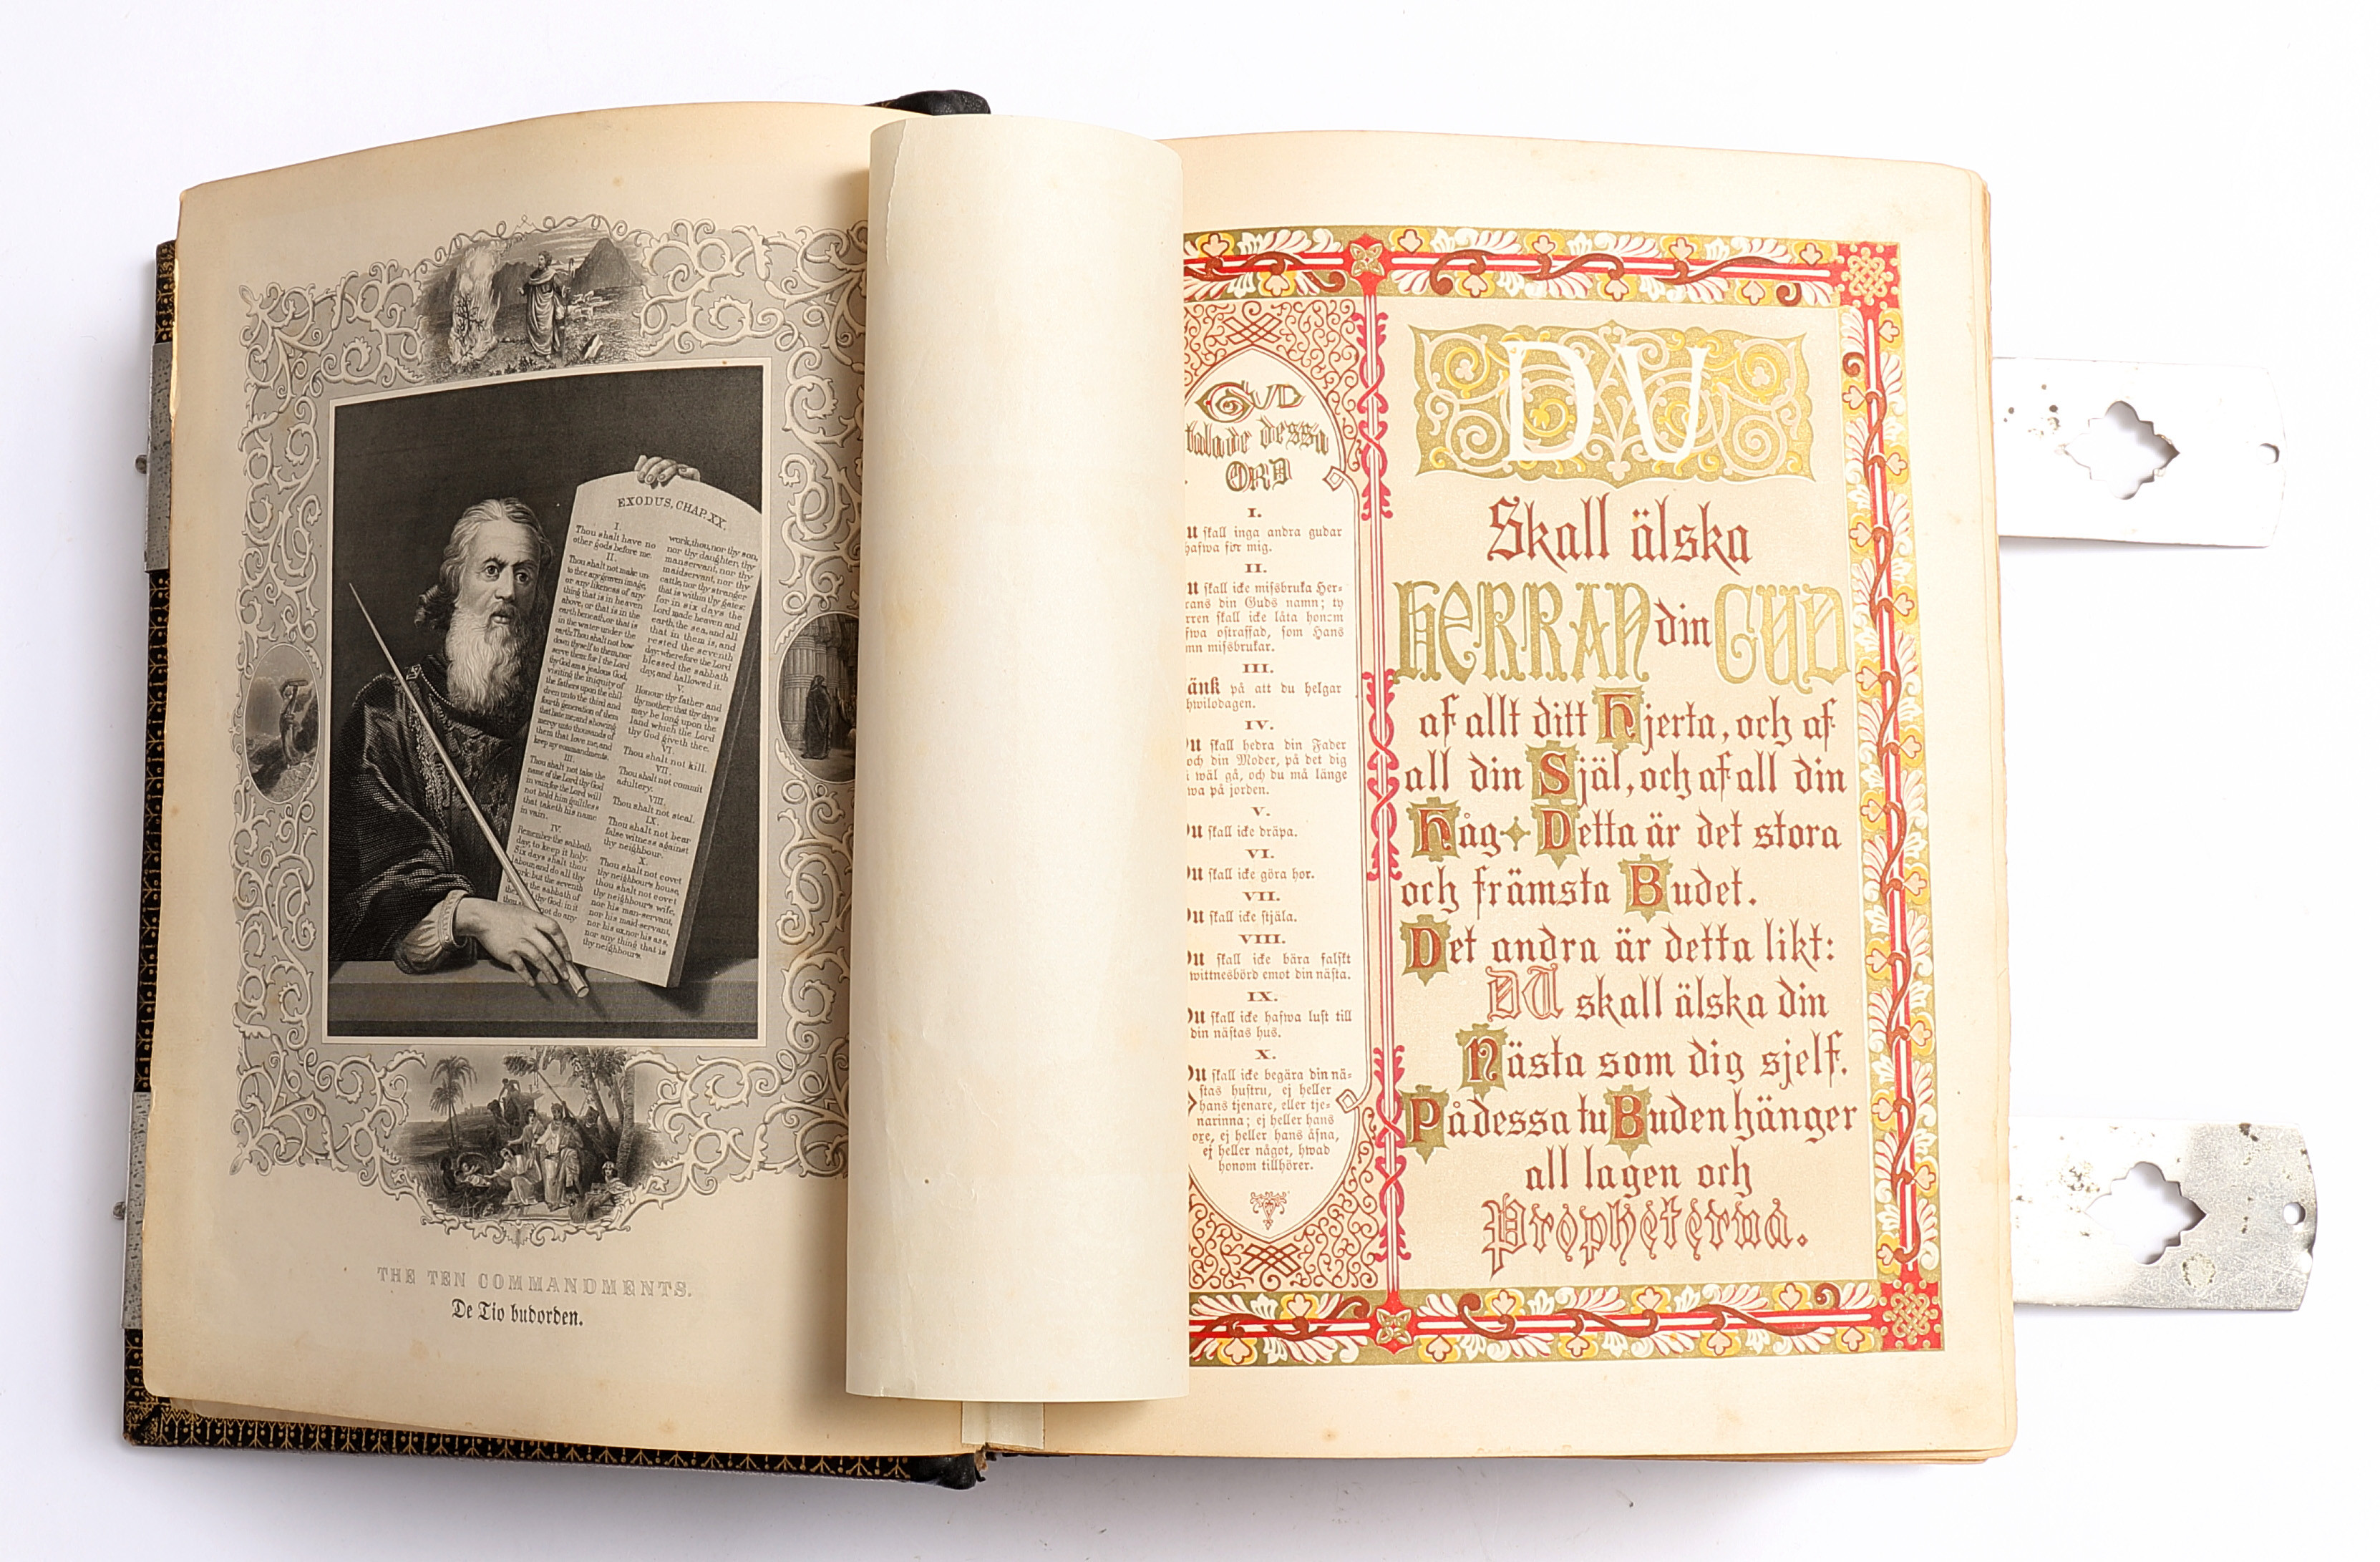 EXODUS, CHAP. XX.
I.
Thou shalt have no
other gods before me.
II.
Thou shalt not make un-
to thee any graven image,
or any likeness of any
thing that is in heaven
above, or that is in the
earth beneath, or that is
in the water under the
earth: Thou shalt not bow
down thyself to them, nor
serve them: for I the Lord
thy God am a jealous God,
visiting the iniquity of
the fathers upon the chil-
dren unto the third and
fourth generation of them
that hate me; and shewing
mercy unto thousands of
them that love me, and
keep my commandments.
III.
Thou shalt not take the
name of the Lord thy God
in vain: for the Lord will
not hold him guiltless
that taketh his name
in vain.
IV.
Remember the sabbath
day, to keep it holy:
Six days shalt thou
labour, and do all thy
work: but the seventh
the sabbath of
thy God: in it
not do any
work, thou, nor thy son,
nor thy daughter, thy
manservant, nor thy
maidservant, nor thy
cattle, nor thy stranger
that is within thy gates:
for in six days the
Lord made heaven and
earth, the sea, and all
that in them is, and
rested the seventh
day; wherefore the Lord
blessed the sabbath
day, and hallowed it.
V.
Honour thy father and
thy mother: that thy days
may be long upon the
land which the Lord
thy God giveth thee.
VI.
Thou shalt not kill.
VII.
Thou shalt not commit
adultery.
VIII.
Thou shalt not steal.
IX.
Thou shalt not bear
false witness against
thy neighbour.
X.
Thou shalt not covet
thy neighbour's house,
thou shalt not covet
thy neighbour's wife,
nor his man-servant,
nor his maid-servant,
nor his ox, nor his ass,
nor any thing that is
thy neighbour's.
THE TEN COMMANDMENTS.
De Tio budorden.
GUD
talade dessa
ORD
I.
u skall inga andra gudar
hafwa för mig.
II.
u skall icke missbruka Her-
rans din Guds namn; ty
rren skall icke låta honom
fwa ostraffad, som Hans
mn missbrukar.
III.
änk på att du helgar
hwilodagen.
IV.
Du skall hedra din Fader
och din Moder, på det dig
i wäl gå, och du må länge
wa på jorden.
V.
Du skall icke dräpa.
VI.
Du skall icke göra hor.
VII.
Du skall icke stjäla.
VIII.
Du skall icke bära falskt
wittnesbörd emot din nästa.
IX.
Du skall icke hafwa lust till
din nästas hus.
X.
Du skall icke begära din nä-
stas hustru, ej heller
hans tjenare, eller tje-
narinna; ej heller hans
oxe, ej heller hans åsna,
ej heller något, hwad
honom tillhörer.
DU
Skall älska
HERRAN din GUD
af allt ditt Hjerta, och af
all din Själ, och af all din
Håg Detta är det stora
och främsta Budet.
Det andra är detta likt:
DU skall älska din
Nästa som dig sjelf.
På dessa tu Buden hänger
all lagen och
Propheterna.